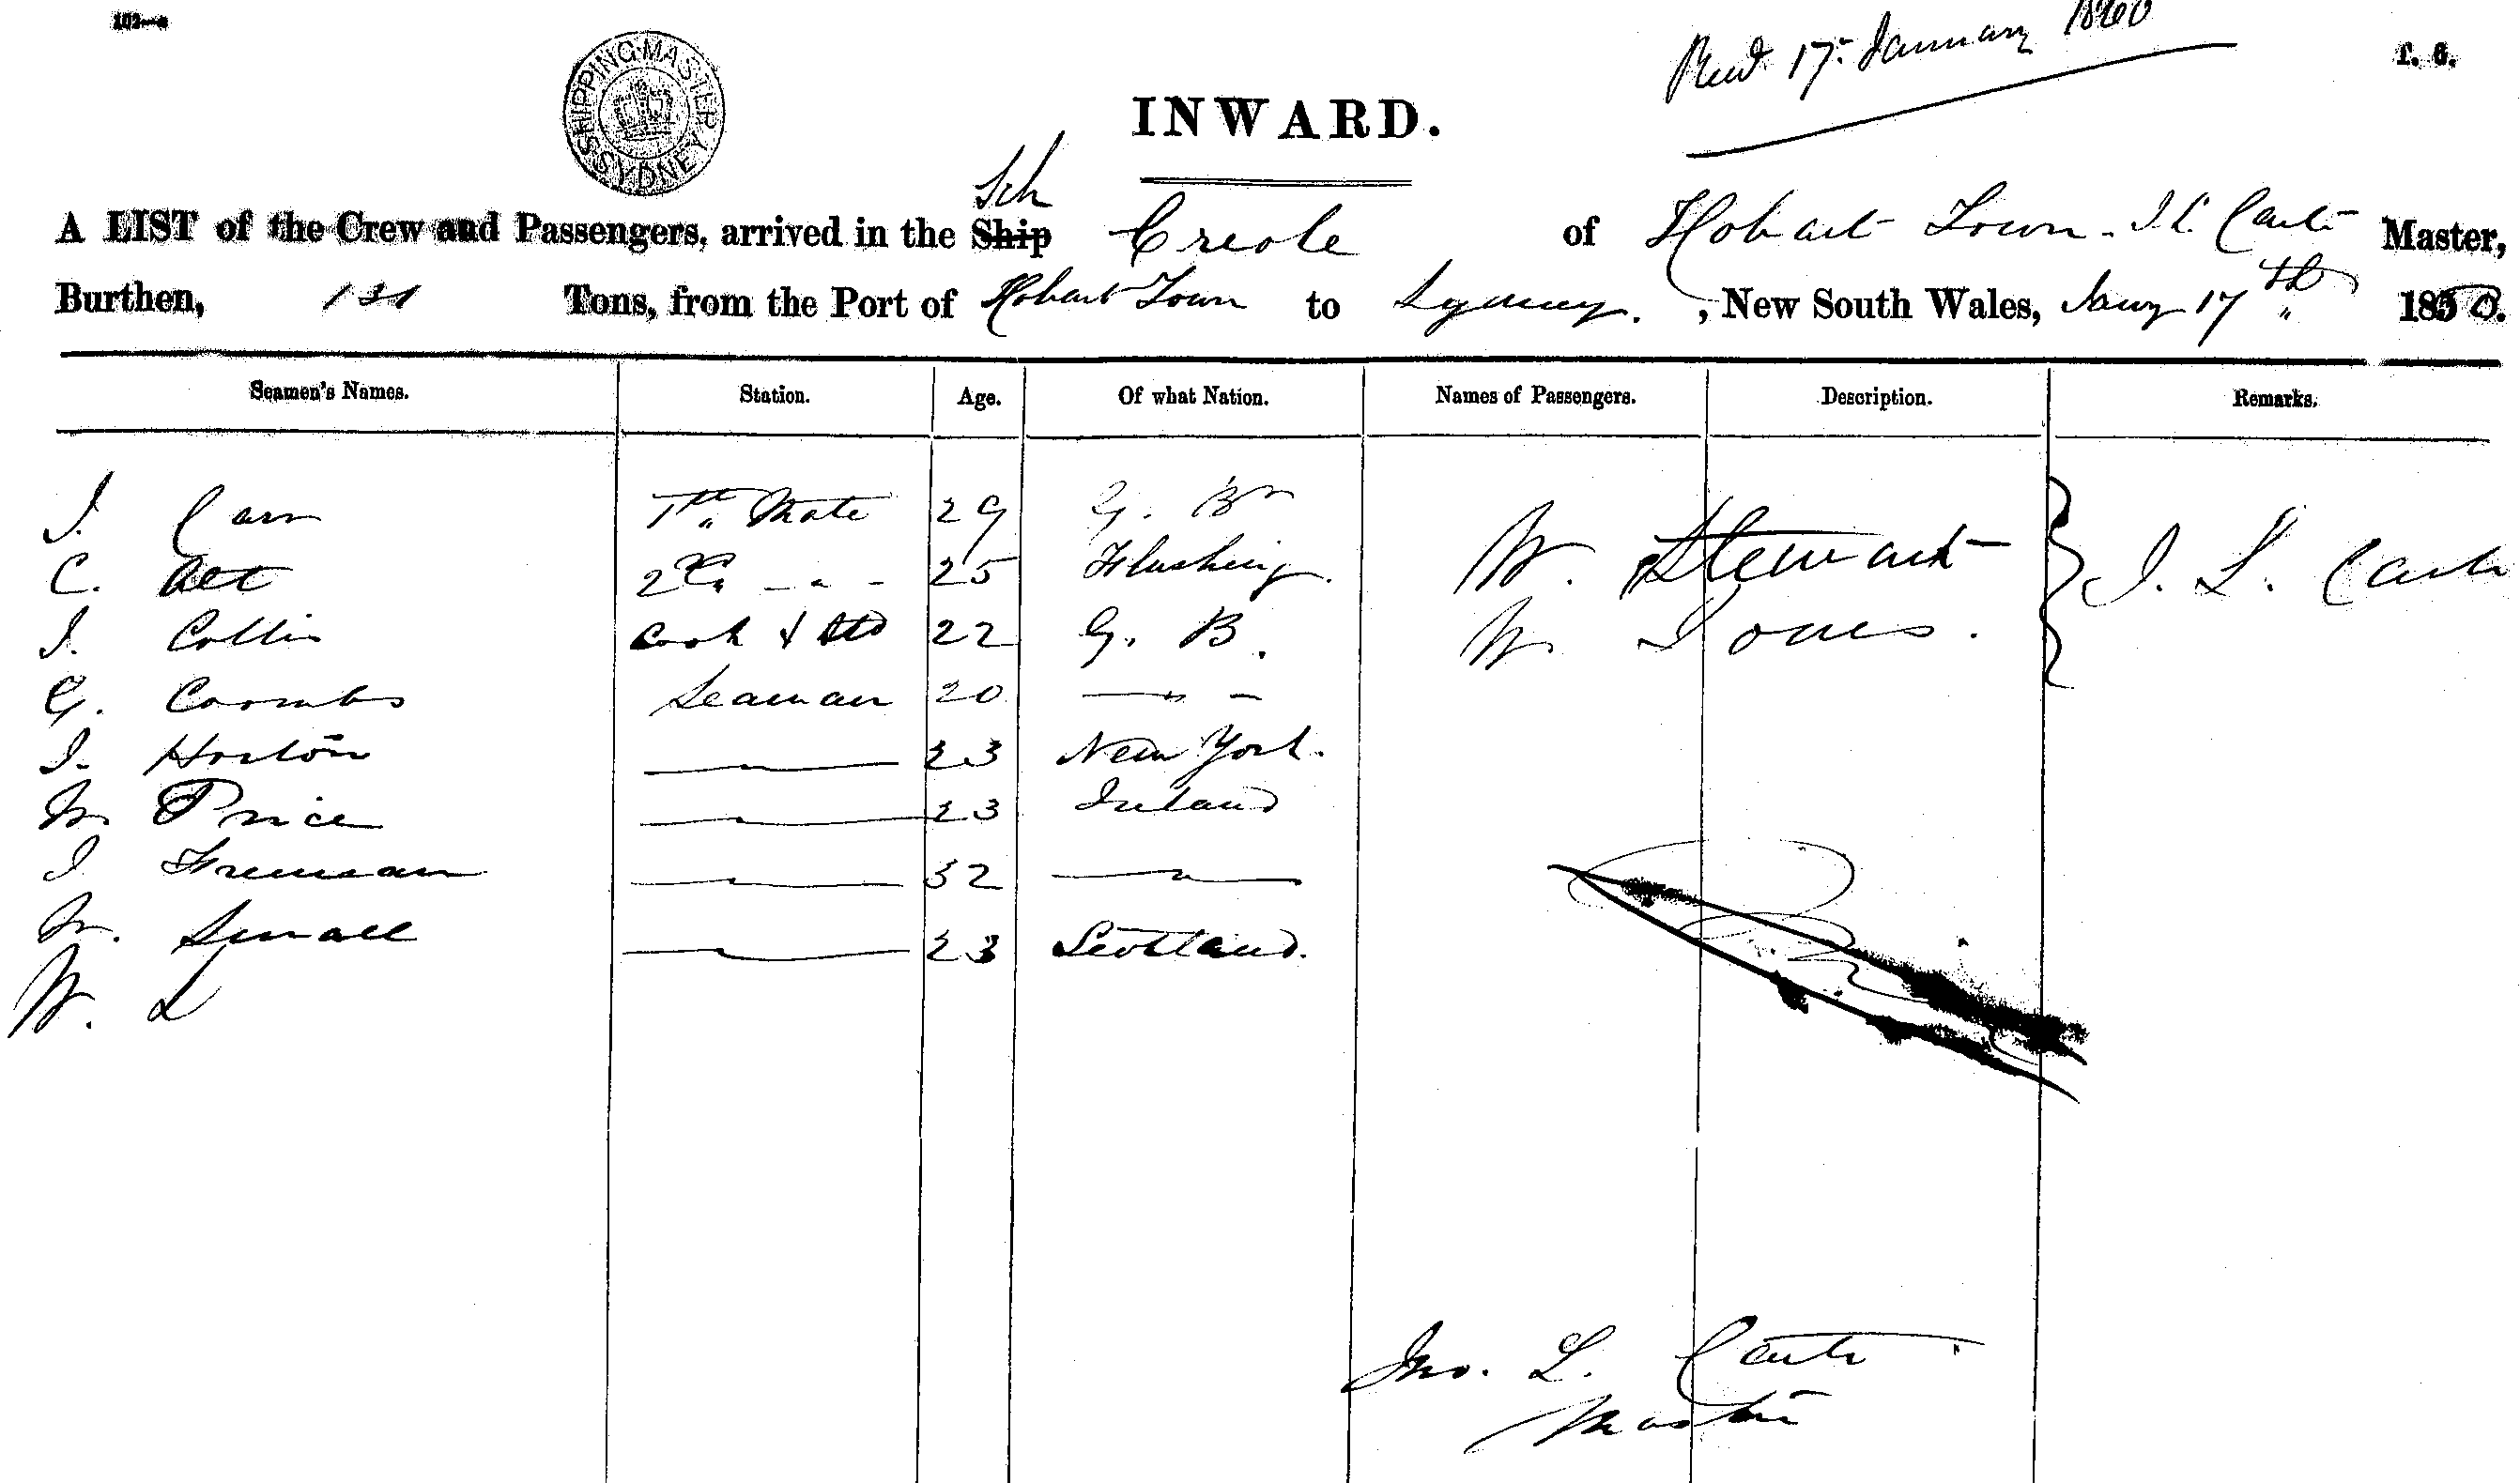 102—a
Recd 17. January 1860
f. 6.
SHIPPING MASTER SYDNEY
INWARD.
Sch
A LIST of the Crew and Passengers, arrived in the Ship Creole of Hobart Town - J L Carter Master,
Burthen, 131 Tons, from the Port of Hobart Town to Sydney. , New South Wales, Jany 17th 1860.
Seamen's Names. Station. Age. Of what Nation. Names of Passengers. Description. Remarks.
J. Carr 1st Mate 29 G. Bn
C. Alt 2d " 25 Flushing. W. Stewart J. L. Carter
J. Collis Cook & Std 22 G. B. W. Jones.
G. Coombs Seaman 20 — " —
J. Horton — " — 23 New York.
W. Price — " — 23 Ireland
J Freeman — " — 32 — " —
W. Small — " — 23 Scotland.
W.
Jno. L. Carter
Master